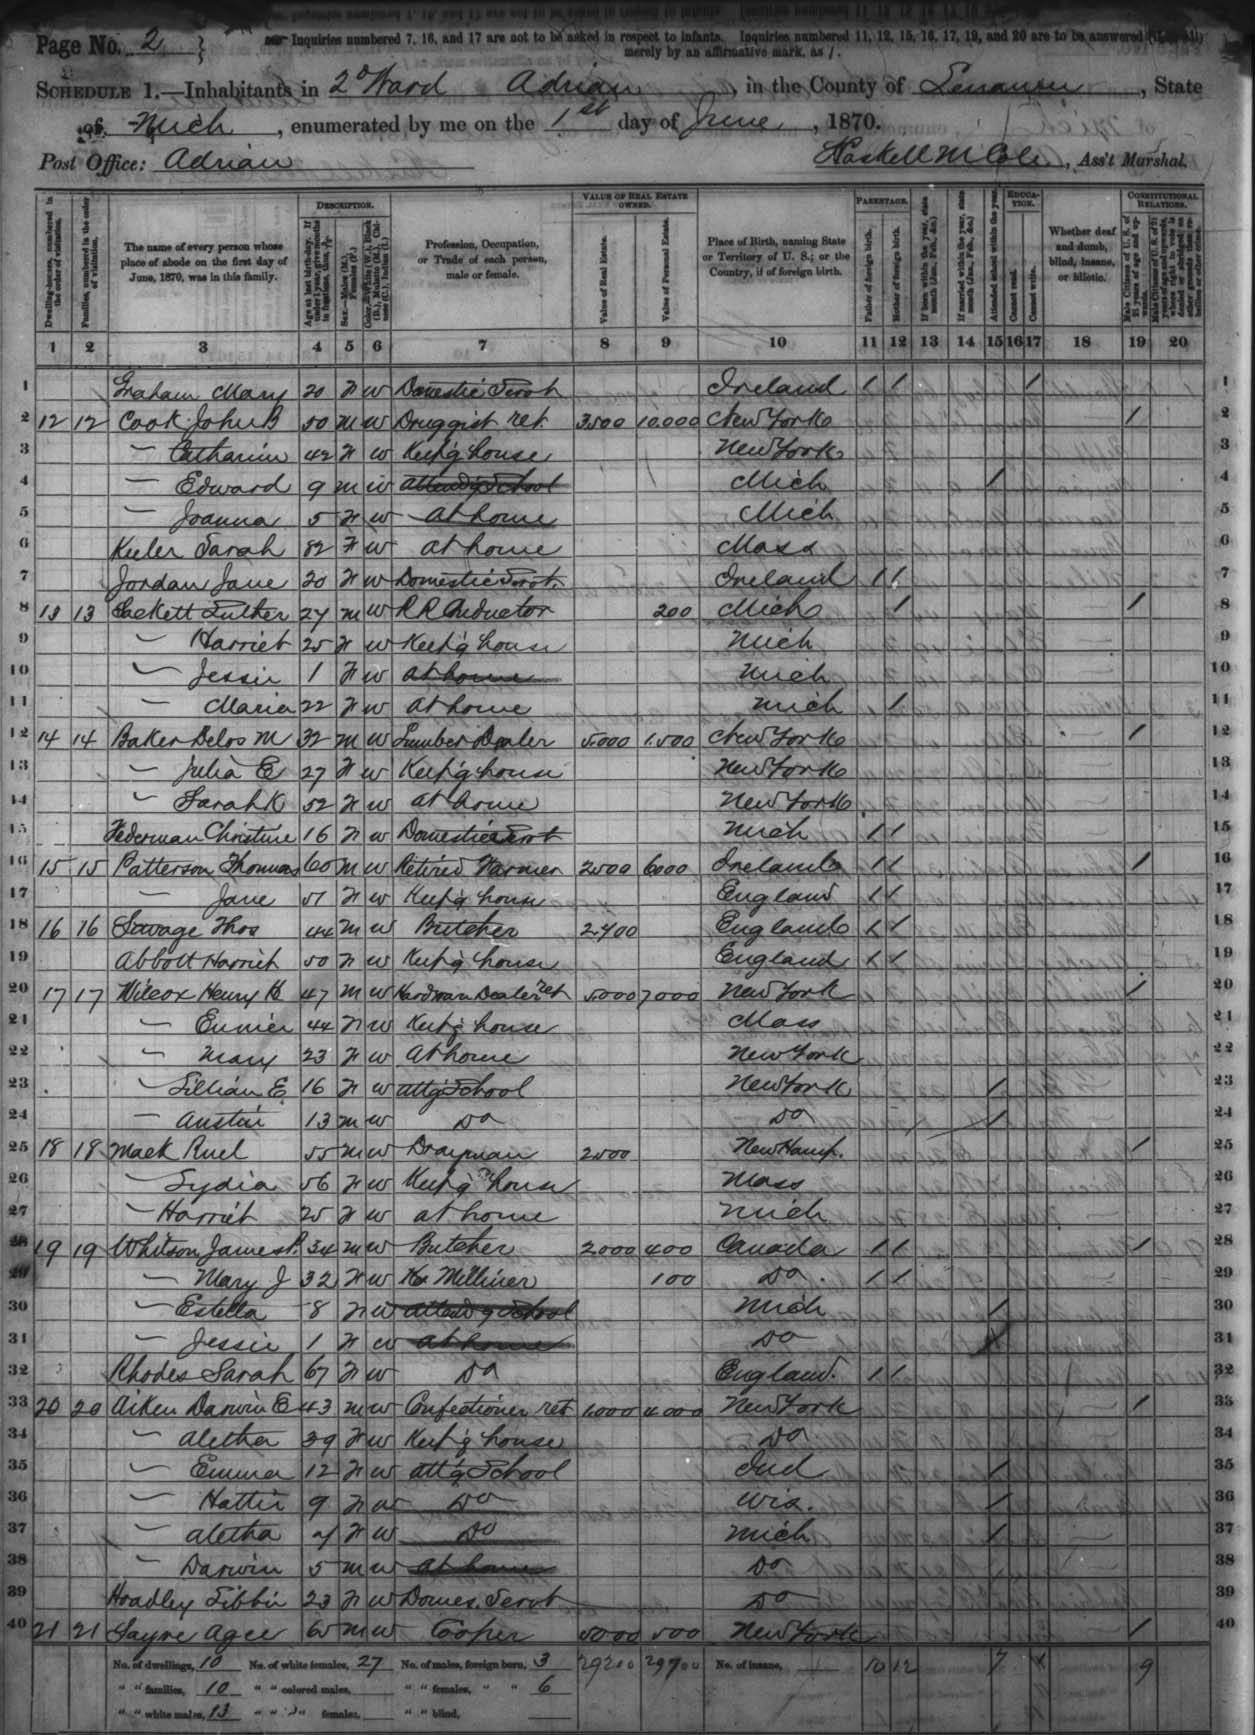 Page No. 2
Inquiries numbered 7, 16, and 17 are not to be asked in respect to infants. Inquiries numbered 11, 12, 15, 16, 17, 19, and 20 are to be answered
merely by an affirmative mark, as /.
SCHEDULE 1.—Inhabitants in 2d Ward Adrian, in the County of Lenawee, State
of Mich, enumerated by me on the 1st day of June, 1870.
Post Office: Adrian Haskell M Cole, Ass't Marshal.
DESCRIPTION. VALUE OF REAL ESTATE OWNED. PARENTAGE. EDUCATION. CONSTITUTIONAL RELATIONS.
Dwelling-houses, numbered in the order of visitation.
Families, numbered in the order of visitation.
The name of every person whose place of abode on the first day of June, 1870, was in this family.
Age at last birth-day. If under 1 year, give months in fractions, thus,
Sex.—Males (M.), Females (F.)
Color.—White (W.), Black (B.), Mulatto (M.), Chinese (C.), Indian (I.)
Profession, Occupation, or Trade of each person, male or female.
Value of Real Estate.
Value of Personal Estate.
Place of Birth, naming State or Territory of U. S.; or the Country, if of foreign birth.
Father of foreign birth.
Mother of foreign birth.
If born within the year, state month (Jan., Feb., &c.)
If married within the year, state month (Jan., Feb., &c.)
Attended school within the year.
Cannot read.
Cannot write.
Whether deaf and dumb, blind, insane, or idiotic.
Male Citizens of U. S. of 21 years of age and upwards.
1 2 3 4 5 6 7 8 9 10 11 12 13 14 15 16 17 18 19 20
1 Graham Mary 20 F W Domestic Servt Ireland / / / 1
2 12 12 Cook John B 50 M W Druggist ret 3500 10.000 New York / 2
3 — Catharine 42 F W Keep'g house New York 3
4 — Edward 9 M W attend'g School Mich / 4
5 — Joanna 5 F W at home Mich 5
6 Keeler Sarah 82 F W at home Mass 6
7 Jordan Jane 20 F W Domestic Servt. Ireland / / 7
8 13 13 Sackett Luther 27 M W R R Conductor 200 Mich / / 8
9 — Harriet 25 F W Keep'g house Mich 9
10 — Jessie 1 F W at home Mich 10
11 — Maria 22 F W at home Mich / 11
12 14 14 Baker Delos M 32 M W Lumber Dealer 5.000 1.500 New York / 12
13 — Julia E 27 F W Keep'g house New York 13
14 — Sarah K 52 F W at home New York 14
15 Federman Christine 16 F W Domestic Servt Mich / / 15
16 15 15 Patterson Thomas 60 M W Retired Farmer 2500 6000 Ireland / / / 16
17 — Jane 51 F W Keep'g house England / / 17
18 16 16 Savage Thos 44 M W Butcher 2.400 England / / 18
19 Abbott Harriet 50 F W Keep'g house England / / 19
20 17 17 Wilcox Henry H 47 M W Hardware Dealer ret 5.000 7000 New York / 20
21 — 44 F W Keep'g house Mass 21
22 — Mary 23 F W At home New York 22
23 — Lillian E 16 F W att'g School New York / 23
24 — Austin 13 M W Do Do / 24
25 18 18 Mack Ruel 55 M W Drayman 2500 New Hamp. / 25
26 — Lydia 56 F W Keep'g house Mass 26
27 — Harriet 25 F W at home Mich 27
28 19 19 Whitson James P. 34 M W Butcher 2000 400 Canada / / / 28
29 — Mary J 32 F W Milliner 100 Do. / / 29
30 — Estella 8 F W attend'g School Mich / 30
31 — Jessie 1 F W at home Do 31
32 Rhodes Sarah 67 F W Do England. / / 32
33 20 20 Aiken Darwin E 43 M W Confectioner ret 1.000 4000 New York / 33
34 — Aletha 39 F W Keep'g house Do 34
35 — Emma 12 F W att'g School Ind / 35
36 — Hattie 9 F W Do Wis. / 36
37 — Aletha 7 F W Do Mich / 37
38 — Darwin 5 M W at home Do 38
39 Hoadley Libbie 23 F W Domes. Servt Do 39
40 21 21 Sayre Agee 60 M W Cooper 5000 500 New York / 40
No. of dwellings, 10 No. of white females, 27 No. of males, foreign born, 3 29200 29700 No. of insane, 10 12 7 9
" " families, 10 " " colored males, " " females, " " 6
" " white males, 13 " " " females, " " blind,